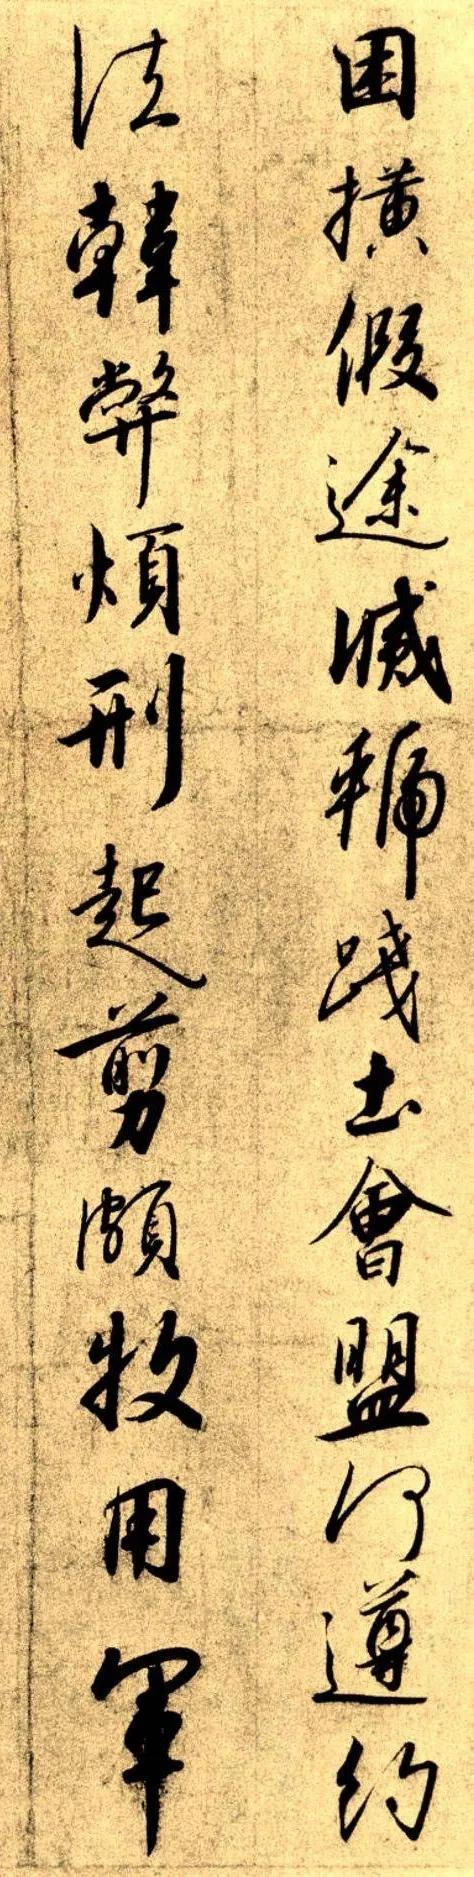 困橫假途滅虢踐土會盟何遵約
法韓弊煩刑起翦頗牧用軍